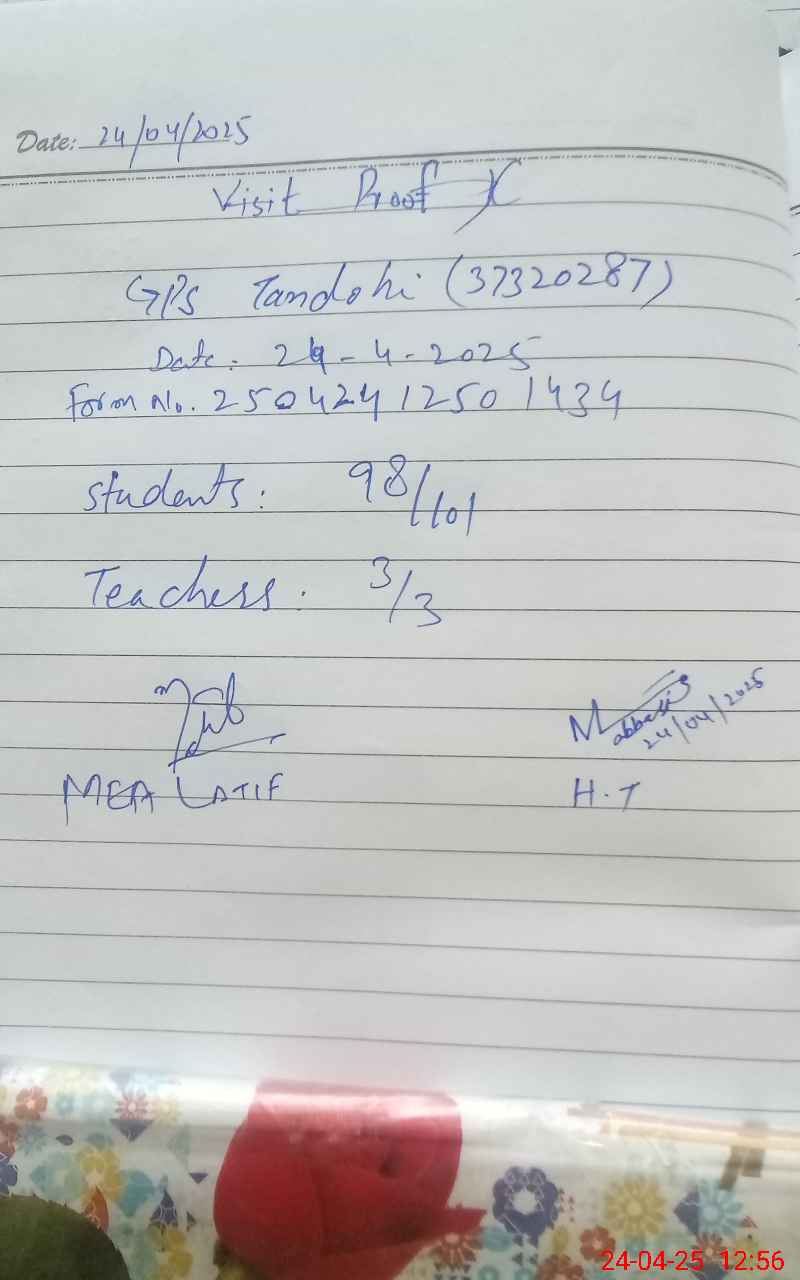 Date: 24/04/2025
Visit Proof
GPS Tandohi (37320287)
Date: 24-4-2025
Form No. 25042412501434
Students: 98/101
Teachers: 3/3
MEA LATIF
abbasi
24/04/2025
H.T
24-04-25 12:56